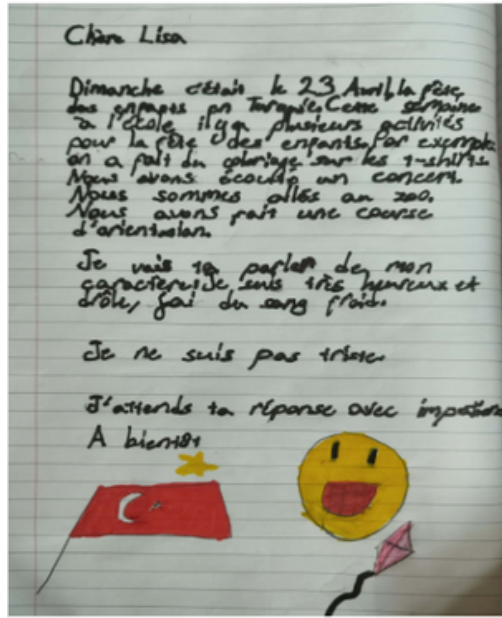 Chère Lisa
Dimanche c'était le 23 Avril, la fête
des enfants en Turquie. Cette semaine
à l'école il y a plusieurs activités
pour la fête des enfants. Par exemple
on a fait du coloriage sur les t-shirts.
Nous avons écouté un concert.
Nous sommes allés au zoo.
Nous avons fait une course
d'orientation.
Je vais te parler de mon
caractère. Je suis très heureux et
drôle, j'ai du sang froid.
Je ne suis pas triste
J'attends ta réponse avec
A bientôt